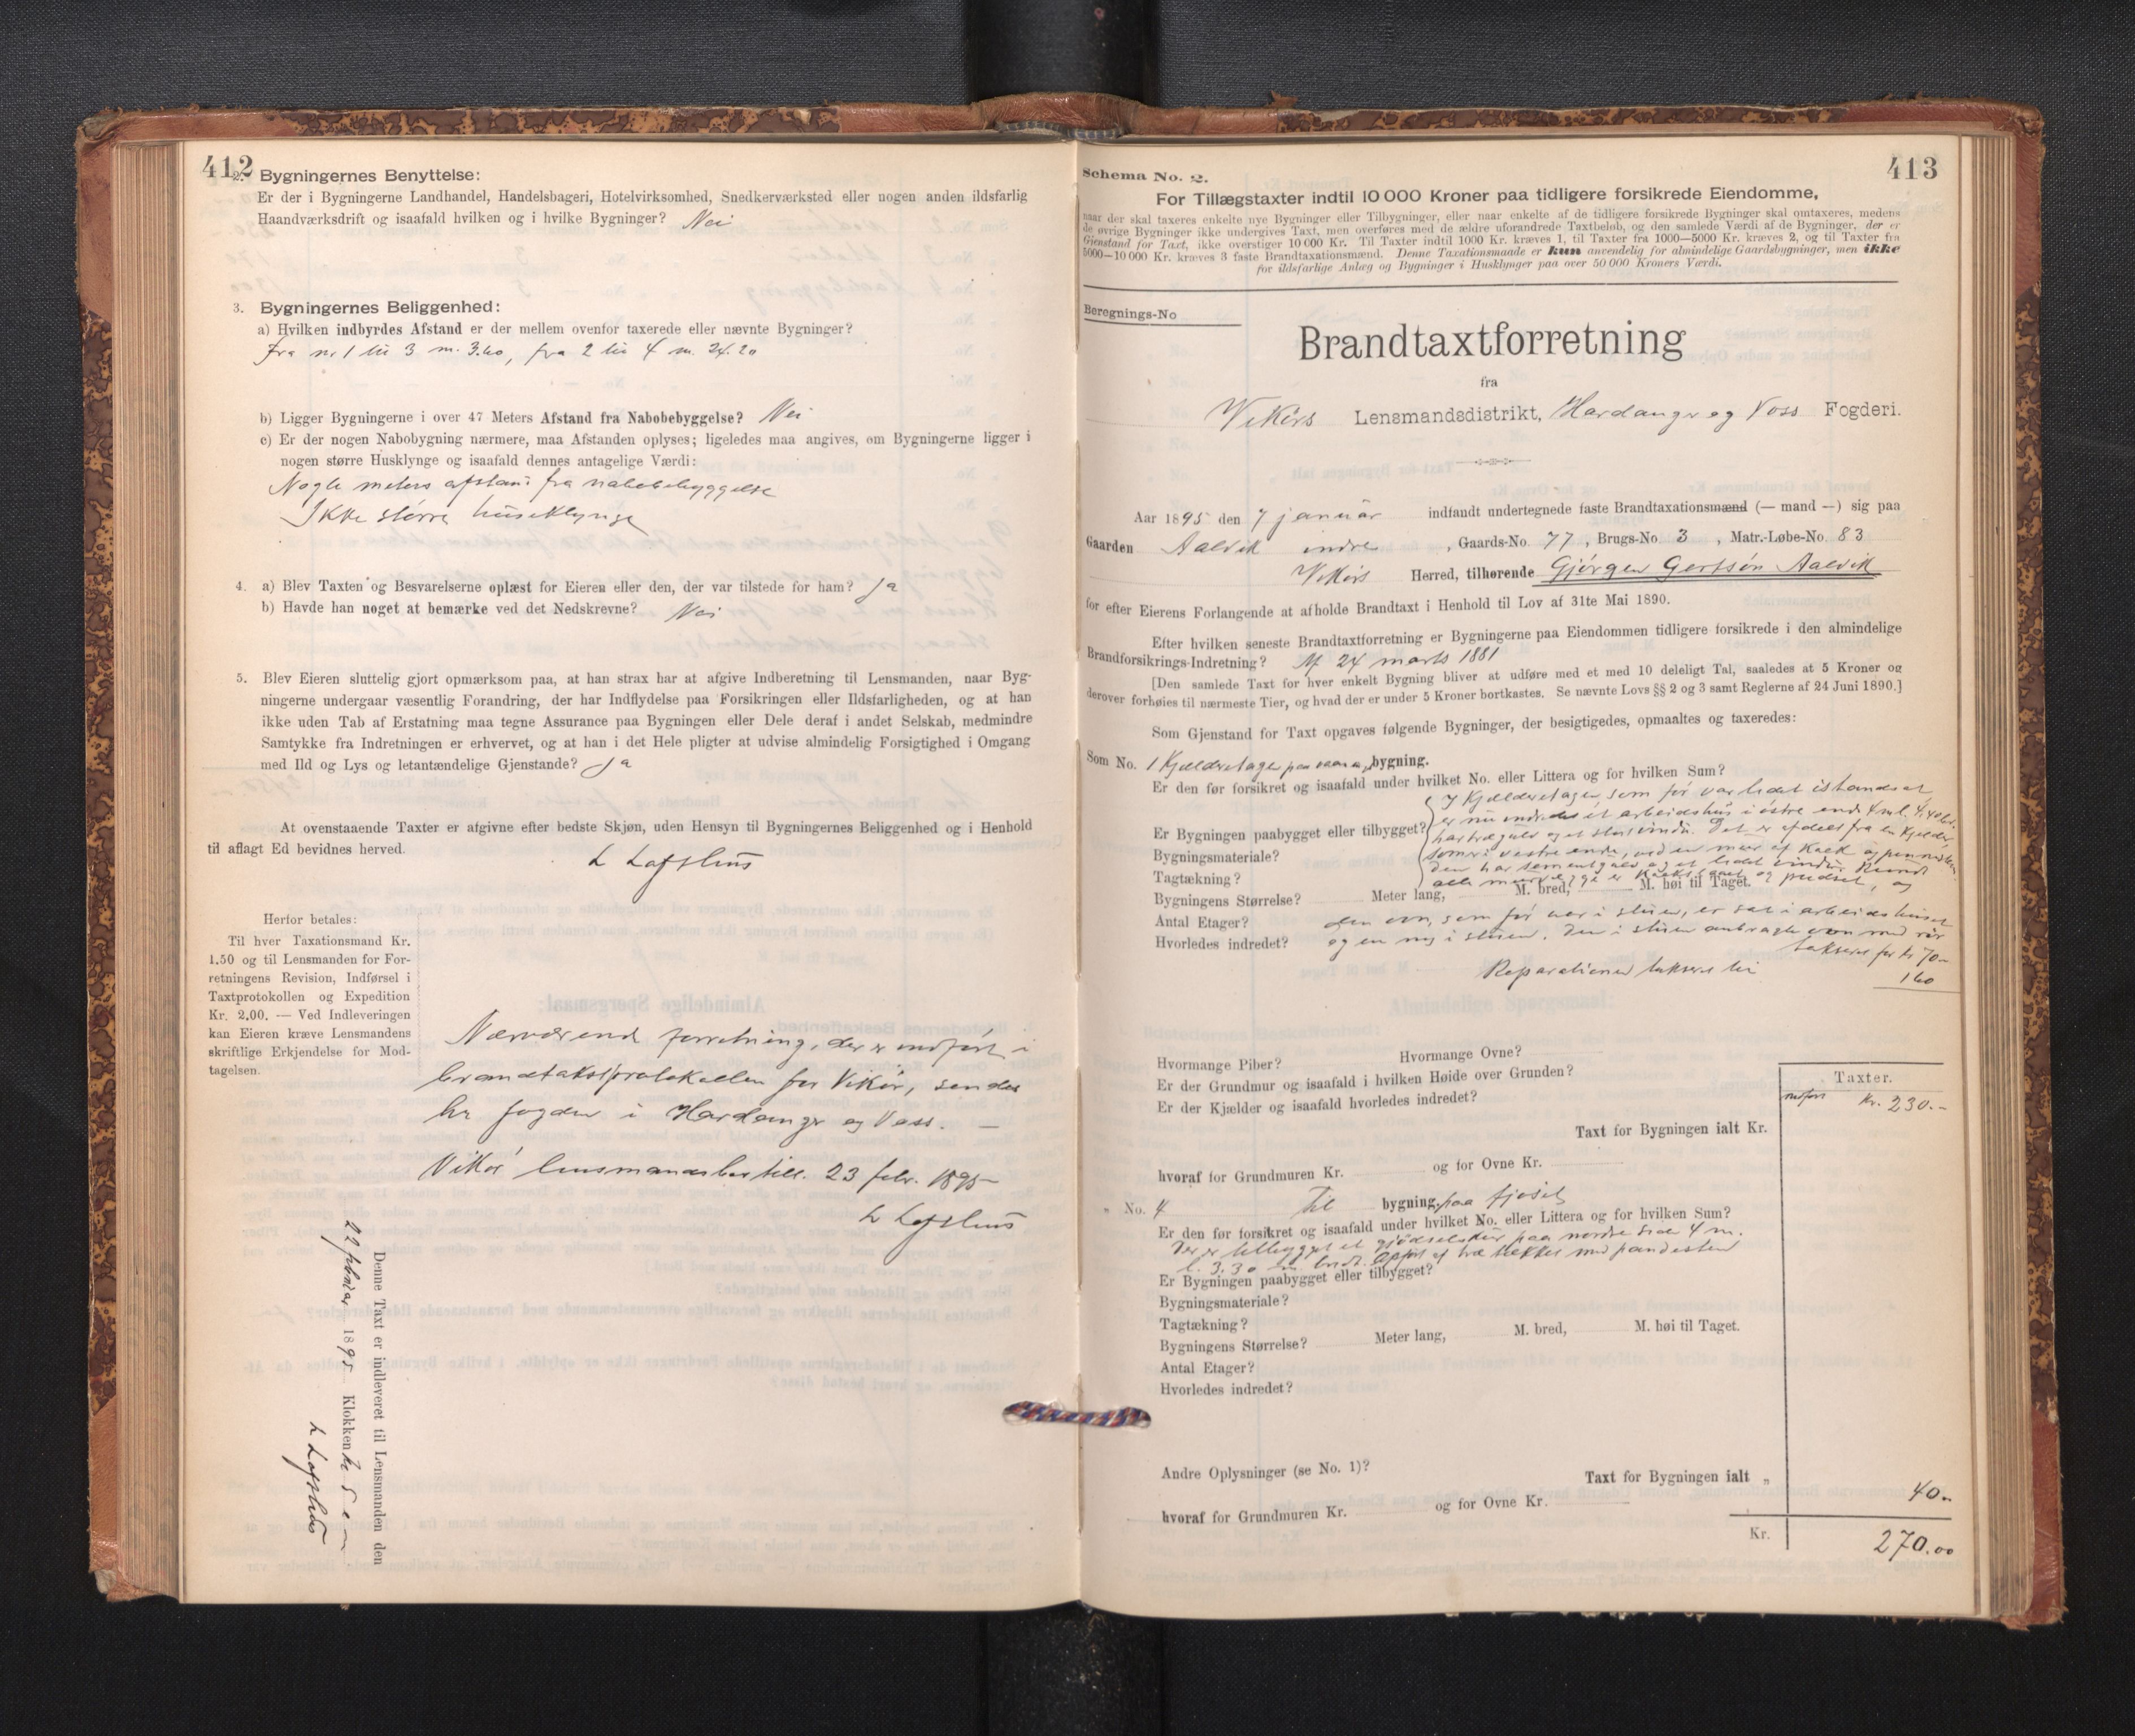 412
2. Bygningernes Benyttelse:
Er der i Bygningerne Landhandel, Handelsbageri, Hotelvirksomhed, Snedkerværksted eller nogen anden ildsfarlig
Haandværksdrift og isaafald hvilken og i hvilke Bygninger? Nei
3. Bygningernes Beliggenhed:
a) Hvilken indbyrdes Afstand er der mellem ovenfor taxerede eller nævnte Bygninger?
fra nr 1 til 3 m. 3.60, fra 2 til 4 m. 24.20
b) Ligger Bygningerne i over 47 Meters Afstand fra Nabobebyggelse? Nei
c) Er der nogen Nabobygning nærmere, maa Afstanden oplyses; ligeledes maa angives, om Bygningerne ligger i
nogen større Husklynge og isaafald dennes antagelige Værdi:
Nogle meters afstand fra nabobebyggelse
Ikke större huseklynge
4. a) Blev Taxten og Besvarelserne oplæst for Eieren eller den, der var tilstede for ham? Ja
b) Havde han noget at bemærke ved det Nedskrevne? Nei
5. Blev Eieren sluttelig gjort opmærksom paa, at han strax har at afgive Indberetning til Lensmanden, naar Byg-
ningerne undergaar væsentlig Forandring, der har Indflydelse paa Forsikringen eller Ildsfarligheden, og at han
ikke uden Tab af Erstatning maa tegne Assurance paa Bygningen eller Dele deraf i andet Selskab, medmindre
Samtykke fra Indretningen er erhvervet, og at han i det Hele pligter at udvise almindelig Forsigtighed i Omgang
med Ild og Lys og letantændelige Gjenstande? Ja
At ovenstaaende Taxter er afgivne efter bedste Skjøn, uden Hensyn til Bygningernes Beliggenhed og i Henhold
til aflagt Ed bevidnes herved.
L Lofthus
Herfor betales:
Til hver Taxationsmand Kr.
1.50 og til Lensmanden for For-
retningens Revision, Indførsel i
Taxtprotokollen og Expedition
Kr. 2.00. — Ved Indleveringen
kan Eieren kræve Lensmandens
skriftlige Erkjendelse for Mod-
tagelsen.
Nærværende forretning, der er indført i
brandtakstprotokollen for Vikör, sendes
hr fogden i Hardanger og Voss. —
Vikör lensmandsbestill. 23 febr. 1895
L Lofthus
Denne Taxt er indleveret til Lensmanden den
22 februar 1895 Klokken 5 em
L Lofthus
413
Schema No. 2.
For Tillægstaxter indtil 10 000 Kroner paa tidligere forsikrede Eiendomme,
naar der skal taxeres enkelte nye Bygninger eller Tilbygninger, eller naar enkelte af de tidligere forsikrede Bygninger skal omtaxeres, medens
de øvrige Bygninger ikke undergives Taxt, men overføres med de ældre uforandrede Taxtbeløb, og den samlede Værdi af de Bygninger, der er
Gjenstand for Taxt, ikke overstiger 10 000 Kr. Til Taxter indtil 1000 Kr. kræves 1, til Taxter fra 1000—5000 Kr. kræves 2, og til Taxter fra
5000—10 000 Kr. kræves 3 faste Brandtaxationsmænd. Denne Taxationsmaade er kun anvendelig for almindelige Gaardsbygninger, men ikke
for ildsfarlige Anlæg og Bygninger i Husklynger paa over 50 000 Kroners Værdi.
Beregnings-No
Brandtaxtforretning
fra
Vikörs Lensmandsdistrikt, Hardanger og Voss Fogderi.
Aar 1895 den 7 januar indfandt undertegnede faste Brandtaxationsmænd (— mand —) sig paa
Gaarden Aalvik indre, Gaards-No. 77, Brugs-No. 3, Matr.-Løbe-No. 83
Vikörs Herred, tilhørende Gjörgen Gertsön Aalvik
for efter Eierens Forlangende at afholde Brandtaxt i Henhold til Lov af 31te Mai 1890.
Efter hvilken seneste Brandtaxtforretning er Bygningerne paa Eiendommen tidligere forsikrede i den almindelige
Brandforsikrings-Indretning? Af 24 marts 1881
[Den samlede Taxt for hver enkelt Bygning bliver at udføre med et med 10 deleligt Tal, saaledes at 5 Kroner og
derover forhøies til nærmeste Tier, og hvad der er under 5 Kroner bortkastes. Se nævnte Lovs §§ 2 og 3 samt Reglerne af 24 Juni 1890.]
Som Gjenstand for Taxt opgaves følgende Bygninger, der besigtigedes, opmaaltes og taxeredes:
Som No. 1 Kjælderetagen paa vaanings bygning.
Er den før forsikret og isaafald under hvilket No. eller Littera og for hvilken Sum?
I Kjælderetagen som för var lidet istandsat
er nu indredet et arbeidshus i östre ende 4 m l. 4,40 br.
Er Bygningen paabygget eller tilbygget?
har trægulv og et stort vindu. Det er afdelt fra en kjelder,
Bygningsmateriale?
som er i vestre ende, ved en mur af kalk og
Tagtækning?
den har sementgulv og et lidet vindu Rundt
alle murvegge er kalkslaget og pudset, og
Bygningens Størrelse? Meter lang, M. bred, M. høi til Taget.
Antal Etager?
den ovn, som för var i stuen, er sat i arbeidshuset
Hvorledes indredet?
og en ny i stuen. Den i stuen anbragte ovn med rör
takseres for kr 70-
Reparationen takseres til 160
Hvormange Piber? Hvormange Ovne?
Er der Grundmur og isaafald i hvilken Høide over Grunden?
Er der Kjælder og isaafald hvorledes indredet?
Taxter.
indført Kr. 230.-
Taxt for Bygningen ialt Kr.
hvoraf for Grundmuren Kr. og for Ovne Kr.
„ No. 4 Til bygning paa fjøset
Er den før forsikret og isaafald under hvilket No. eller Littera og for hvilken Sum?
Der er tilbygget et gjödselskur paa nordre side 4 m.
l. 3.30 m. bredt. Opfört af træ tækket med pandesten
Er Bygningen paabygget eller tilbygget?
Bygningsmateriale?
Tagtækning?
Bygningens Størrelse? Meter lang, M. bred, M. høi til Taget.
Antal Etager?
Hvorledes indredet?
Andre Oplysninger (se No. 1)?
Taxt for Bygningen ialt „ 40..
hvoraf for Grundmuren Kr. og for Ovne Kr.
Kr. 270.00